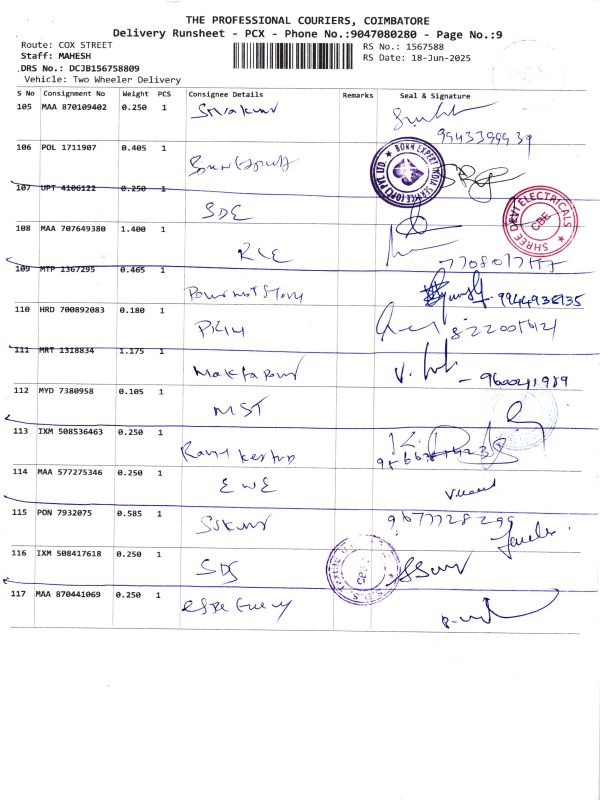 THE PROFESSIONAL COURIERS, COIMBATORE
Delivery Runsheet - PCX - Phone No.:9047080280 - Page No.:9
Route: COX STREET
RS No.: 1567588
Staff: MAHESH
RS Date: 18-Jun-2025
DRS No.: DCJB156758809
Vehicle: Two Wheeler Delivery
S No Consignment No Weight PCS Consignee Details Remarks Seal & Signature
105 MAA 870109402 0.250 1 Sivakumar
9943399939
106 POL 1711907 0.405 1
BORN EXPERT INDIA SERVICE (OPC) PVT LTD.
107 UPT 4106122 0.250 1
SDE
SHREE DEVI ELECTRICALS
CBE
108 MAA 707649380 1.400 1
RLE
109 MTP 1367295 0.465 1
9944936135
110 HRD 700892083 0.180 1
111 MRT 1318834 1.175 1
V.
9600241989
112 MYD 7380958 0.105 1
MST
113 IXM 508536463 0.250 1
114 MAA 577275346 0.250 1
EWE
115 PON 7932075 0.585 1
9677728299
116 IXM 508417618 0.250 1
SDS
117 MAA 870441069 0.250 1